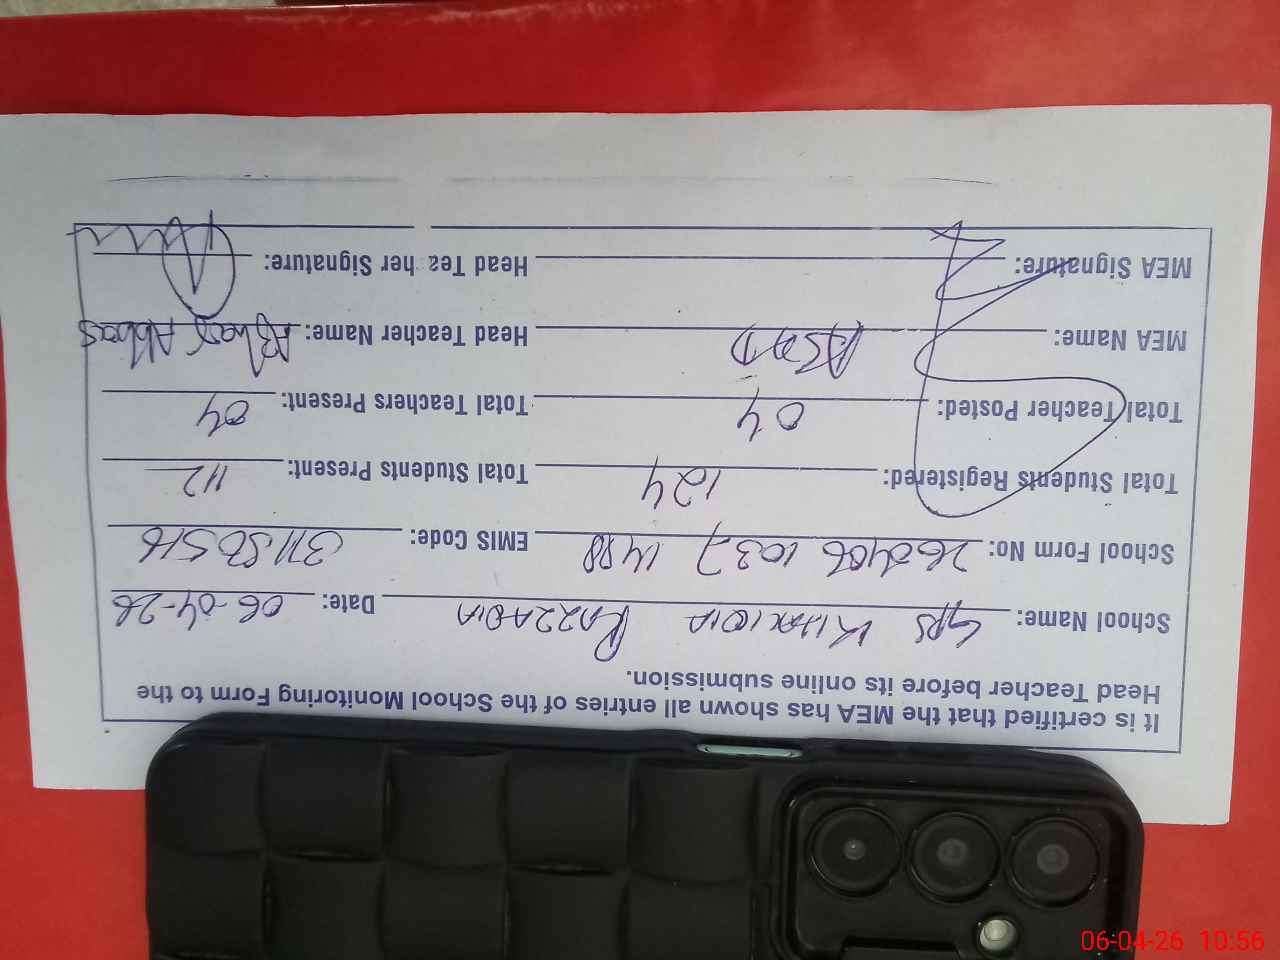 It is certified that the MEA has shown all entries of the School Monitoring Form to the
Head Teacher before its online submission.
School Name: GPS KHARIOIA Date: 06-04-26
School Form No: 1037 1488 EMIS Code:
Total Students Registered: 124 Total Students Present: 112
Total Teacher Posted: 04 Total Teachers Present: 04
MEA Name: ASAD Head Teacher Name: Abbas
MEA Signature: Head Teacher Signature:
06-04-26 10:56